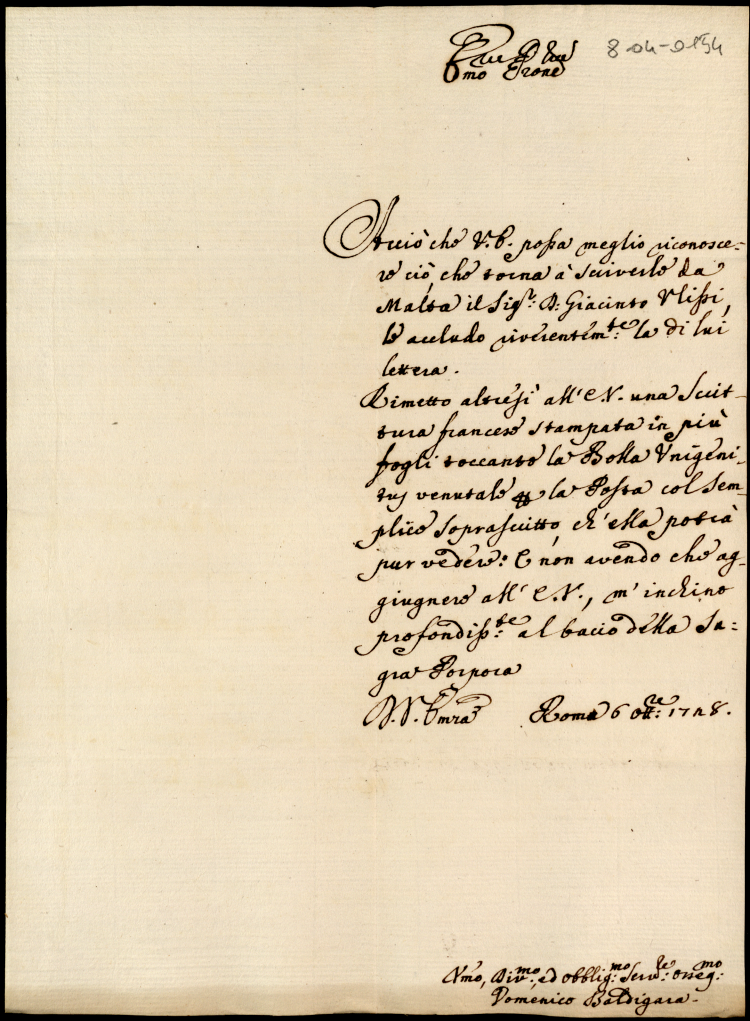 8-04-0154
Emo Prone
Acciò che V.E. possa meglio riconosce=
re ciò che torna à scriverle da
Malta il Sigr: D: Giacinto Ulissi,
le accludo riverentemte: la di lui
lettera.
Rimetto altresì all'E.V. una Scrit-
tura francese stampata in più
fogli toccante la Bolla Unigeni-
tus venutale la Posta col sem-
plice soprascritto, ch'ella potrà
pur vedere: E non avendo che ag-
giugnere all'E.V., m'inchino
profondisste: al bacio della Sa=
gra Porpora
D.V. Emza Roma 6 ottre: 1728.
Vmo, Divmo: ed obbligmo: Servre: ossegmo:
Domenico Baldigara.